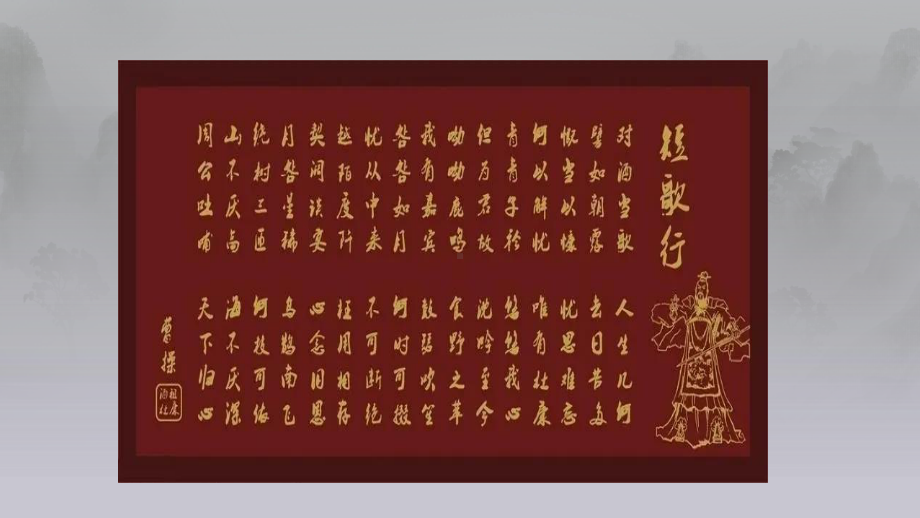 短歌行
对酒当歌 人生几何
譬如朝露 去日苦多
慨当以慷 忧思难忘
何以解忧 唯有杜康
青青子衿 悠悠我心
但为君故 沈吟至今
呦呦鹿鸣 食野之苹
我有嘉宾 鼓瑟吹笙
明明如月 何时可掇
忧从中来 不可断绝
越陌度阡 枉用相存
契阔谈宴 心念旧恩
月明星稀 乌鹊南飞
绕树三匝 何枝可依
山不厌高 海不厌深
周公吐哺 天下归心
曹操